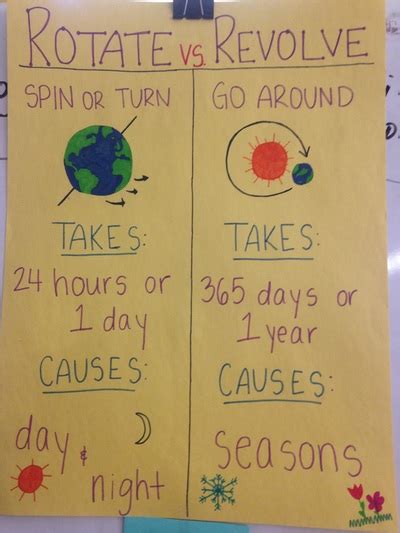 ROTATE vs. REVOLVE
SPIN OR TURN
TAKES:
24 hours or
1 day
CAUSES:
day &
night
GO AROUND
TAKES:
365 days or
1 year
CAUSES:
seasons